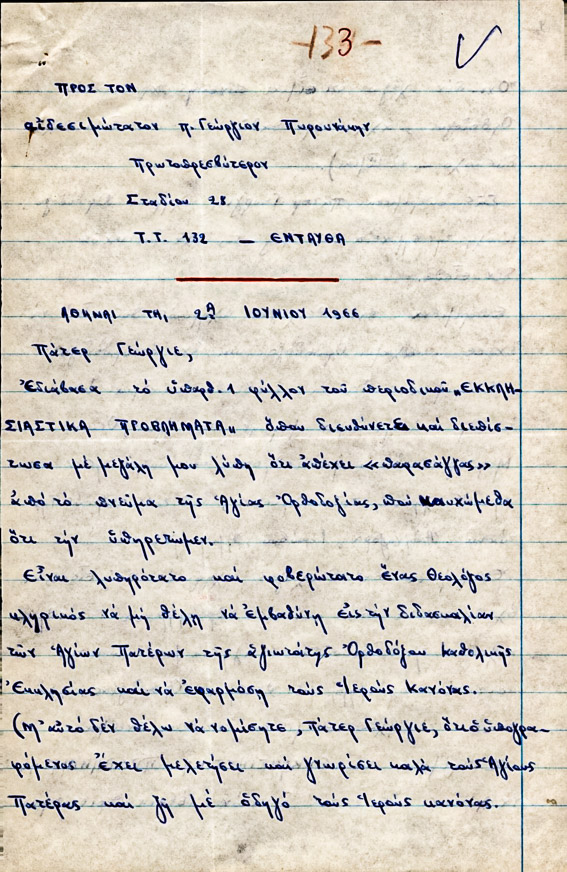 -133-
ΠΡΟΣ ΤΟΝ
αἰδεσιμώτατον π. Γεώργιον Πυρουνάκην
Πρωτοπρεσβύτερον
Σταδίου 28
Τ.Τ. 132 — ΕΝΤΑΥΘΑ
ΑΘΗΝΑΙ ΤΗι 2ᾳ ΙΟΥΝΙΟΥ 1966
Πάτερ Γεώργιε,
Ἐδιάβασα τό ὑπ' ἀριθ. 1 φύλλον τοῦ περιοδικοῦ „ΕΚΚΛΗ-
ΣΙΑΣΤΙΚΑ ΠΡΟΒΛΗΜΑΤΑ„ ὅπου διευθύνετε καί διεπίσ-
τωσα μέ μεγάλη μου λύπη ὅτι ἀπέχει «παρασάγγας»
ἀπό τό πνεῦμα τῆς Ἁγίας Ὀρθοδοξίας, πού καυχώμεθα
ὅτι τήν ὑπηρετῶμεν.
Εἶναι λυπηρότατο καί φοβερώτατο ἕνας Θεολόγος
κληρικός νά μή θέλη νά ἐμβαθύνη εἰς τήν διδασκαλίαν
τῶν Ἁγίων Πατέρων τῆς ἁγιωτάτης Ὀρθοδόξου Καθολικῆς
Ἐκκλησίας καί νά ἐφαρμόση τούς Ἱερούς Κανόνας.
(Μ' αὐτό δέν θέλω νά νομίσητε, Πάτερ Γεώργιε, ὅτι ὁ ὑπογρα-
φόμενος ἔχει μελετήσει καί γνωρίσει καλά τούς Ἁγίους
Πατέρας καί ζῆ μέ ὁδηγό τούς Ἱερούς κανόνας.